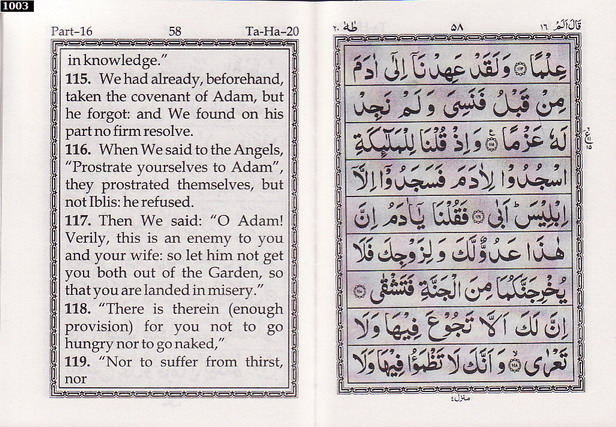 1003
Part-16 58 Ta-Ha-20
in knowledge.”
115. We had already, beforehand,
taken the covenant of Adam, but
he forgot: and We found on his
part no firm resolve.
116. When We said to the Angels,
“Prostrate yourselves to Adam”,
they prostrated themselves, but
not Iblis: he refused.
117. Then We said: “O Adam!
Verily, this is an enemy to you
and your wife: so let him not get
you both out of the Garden, so
that you are landed in misery.”
118. “There is therein (enough
provision) for you not to go
hungry nor to go naked,”
119. “Nor to suffer from thirst,
nor
قَالَ اَلَمْ ١٦ ٥٨ طٰهٰ ٢٠
عِلْمًا ﴿١١٤﴾ وَلَقَدْ عَهِدْنَآ اِلٰٓى اٰدَمَ
مِنْ قَبْلُ فَنَسِىَ وَلَمْ نَجِدْ
لَهٗ عَزْمًا ﴿١١٥﴾ وَاِذْ قُلْنَا لِلْمَلٰٓئِكَةِ
اسْجُدُوْا لِاٰدَمَ فَسَجَدُوْٓا اِلَّآ
اِبْلِيْسَ ؕ اَبٰى ﴿١١٦﴾ فَقُلْنَا يٰٓاٰدَمُ اِنَّ
هٰذَا عَدُوٌّ لَّكَ وَلِزَوْجِكَ فَلَا
يُخْرِجَنَّكُمَا مِنَ الْجَنَّةِ فَتَشْقٰى ﴿١١٧﴾
اِنَّ لَكَ اَلَّا تَجُوْعَ فِيْهَا وَلَا
تَعْرٰى ﴿١١٨﴾ وَاَنَّكَ لَا تَظْمَؤُا فِيْهَا وَلَا
منزل ٤